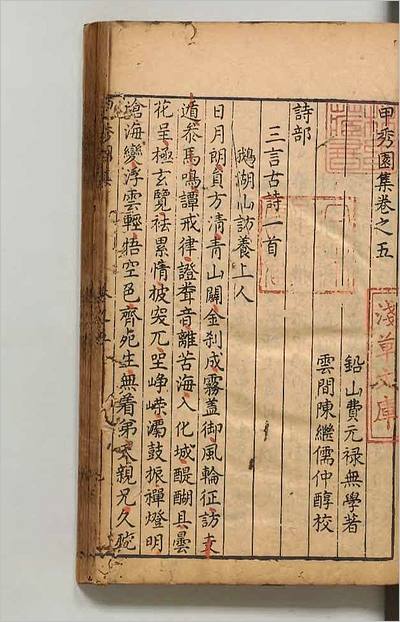 甲秀園集卷之五
鉛山費元祿無學著
雲間陳繼儒仲醇校
詩部
三言古詩一首
鵝湖山訪養上人
日月朗貟方清青山闢金刹成霧蓋御風輪征訪支
遁叅馬鳴譚戒律證聲音離苦海入化城醍醐具曇
花呈極玄覽袪累情披窔兀坐崢嶸濁鼓振禪燈明
滄海變浮雲輕悟空色齊死生無着弟太親兄久
淺草文庫